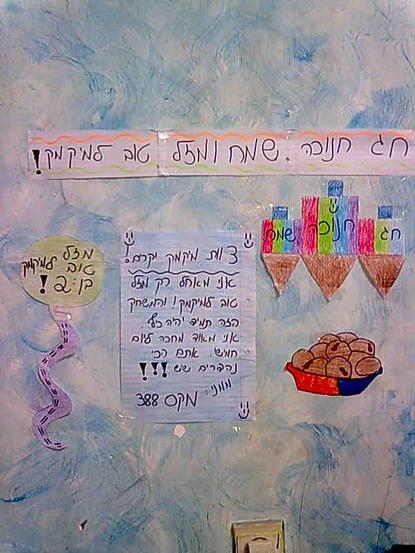 חג חנוכה שמח ומזל טוב למיקמק!
חג
חנוכה
שמח
מזל
טוב למיקמק
בן: 2
!
צוות מיקמק יקרם!
אני מאחל רק מזל
טוב למיקמק! והמשחק
הזה תמיד יהיה כיף.
אני מאוד מחכה ליום
חמישי אתם הכי
נהדרים שיש!!!
ממני: מקס 388